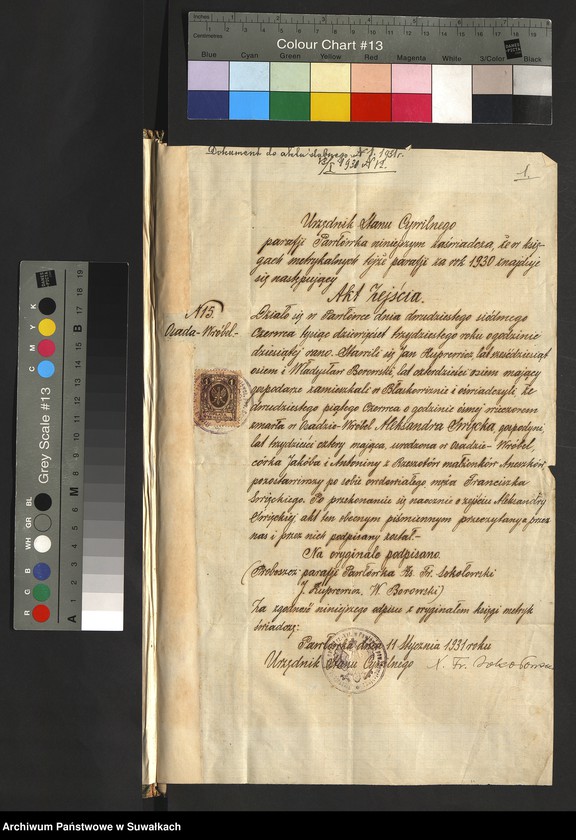 Colour Chart #13
Blue Cyan Green Yellow Red Magenta White 3/Color Black
Grey Scale #13
Dokument do aktu ślubnego N 1. 1931 r.
1.
Urzędnik Stanu Cywilnego
parafji Pawłówka niniejszym zaświadcza, że w księ-
gach metrykalnych tejże parafji za rok 1930 znajduje
się następujący
Akt Zejścia.
N 15.
Osada-Wróbel-
Działo się w Pawłówce dnia dwudziestego siódmego
Czerwca tysiąc dziewięćset trzydziestego roku o godzinie
dziesiątej rano. Stawili się Jan Kuprewicz, lat sześćdziesiąt
osiem i Władysław Borowski, lat czterdzieści osiem mający
gospodarze zamieszkali w i oświadczyli że
dwudziestego piątego Czerwca o godzinie ósmej wieczorem
zmarła w Osadzie-Wróbel Aleksandra gospodyni,
lat trzydzieści cztery mająca, urodzona w Osadzie-Wróbel
córka Jakóba i Antoniny z małżonków
pozostawiwszy po sobie owdowiałego męża Franciszka
Po przekonaniu się naocznie o zejściu Aleksandry
akt ten obecnym piśmiennym przeczytany a przez
nas i przez nich podpisany został.-
Na oryginale podpisano.
(Proboszcz parafji Pawłówka Ks. Fr. Sokołowski
J. Kuprewicz, W. Borowski)
Za zgodność niniejszego odpisu z oryginałem księgi metryk
świadczę:
Pawłówka dnia 11 Stycznia 1931 roku
Urzędnik Stanu Cywilnego X. Fr. Sokołowski
Archiwum Państwowe w Suwałkach